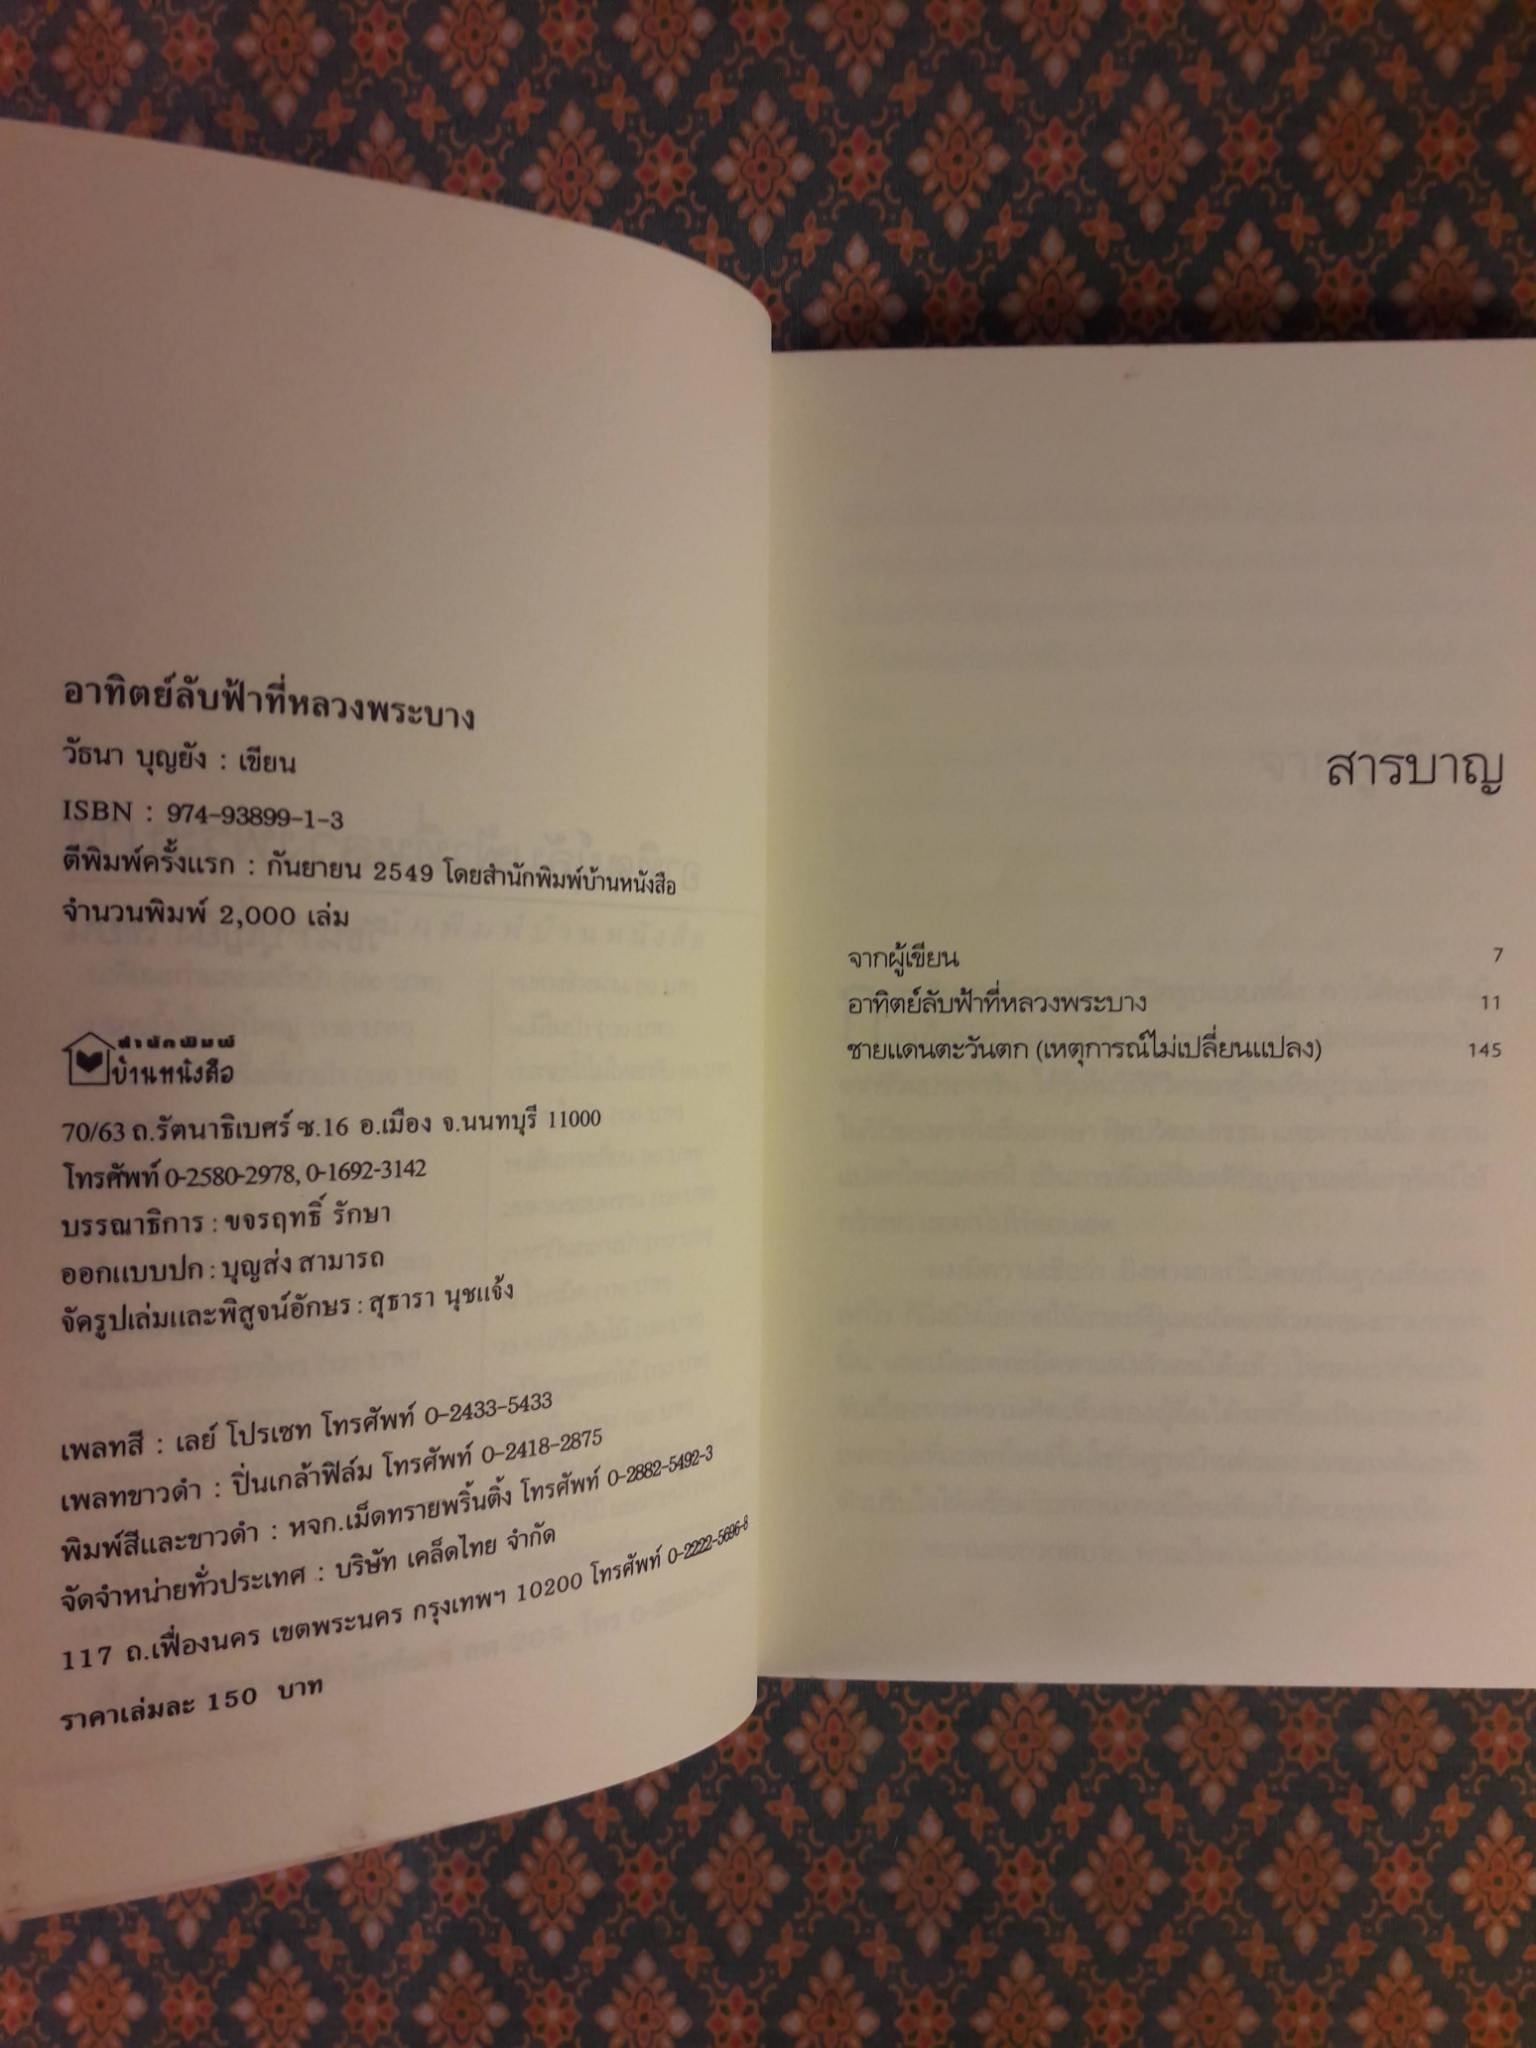 อาทิตย์ลับฟ้าที่หลวงพระบาง
วัธนา บุญยัง : เขียน
ISBN : 974-93899-1-3
ตีพิมพ์ครั้งแรก : กันยายน 2549 โดยสำนักพิมพ์บ้านหนังสือ
จำนวนพิมพ์ 2,000 เล่ม
สำนักพิมพ์
บ้านหนังสือ
70/63 ถ.รัตนาธิเบศร์ ซ.16 อ.เมือง จ.นนทบุรี 11000
โทรศัพท์ 0-2580-2978, 0-1692-3142
บรรณาธิการ : ขจรฤทธิ์ รักษา
ออกแบบปก : บุญส่ง สามารถ
จัดรูปเล่มและพิสูจน์อักษร : สุธารา นุชแจ้ง
เพลทสี : เลย์ โปรเซท โทรศัพท์ 0-2433-5433
เพลทขาวดำ : ปิ่นเกล้าฟิล์ม โทรศัพท์ 0-2418-2875
พิมพ์สีและขาวดำ : หจก.เม็ดทรายพริ้นติ้ง โทรศัพท์ 0-2882-5492-3
จัดจำหน่ายทั่วประเทศ : บริษัท เคล็ดไทย จำกัด
117 ถ.เฟื่องนคร เขตพระนคร กรุงเทพฯ 10200 โทรศัพท์ 0-2222-5696-8
ราคาเล่มละ 150 บาท
สารบาญ
จากผู้เขียน 7
อาทิตย์ลับฟ้าที่หลวงพระบาง 11
ชายแดนตะวันตก (เหตุการณ์ไม่เปลี่ยนแปลง) 145